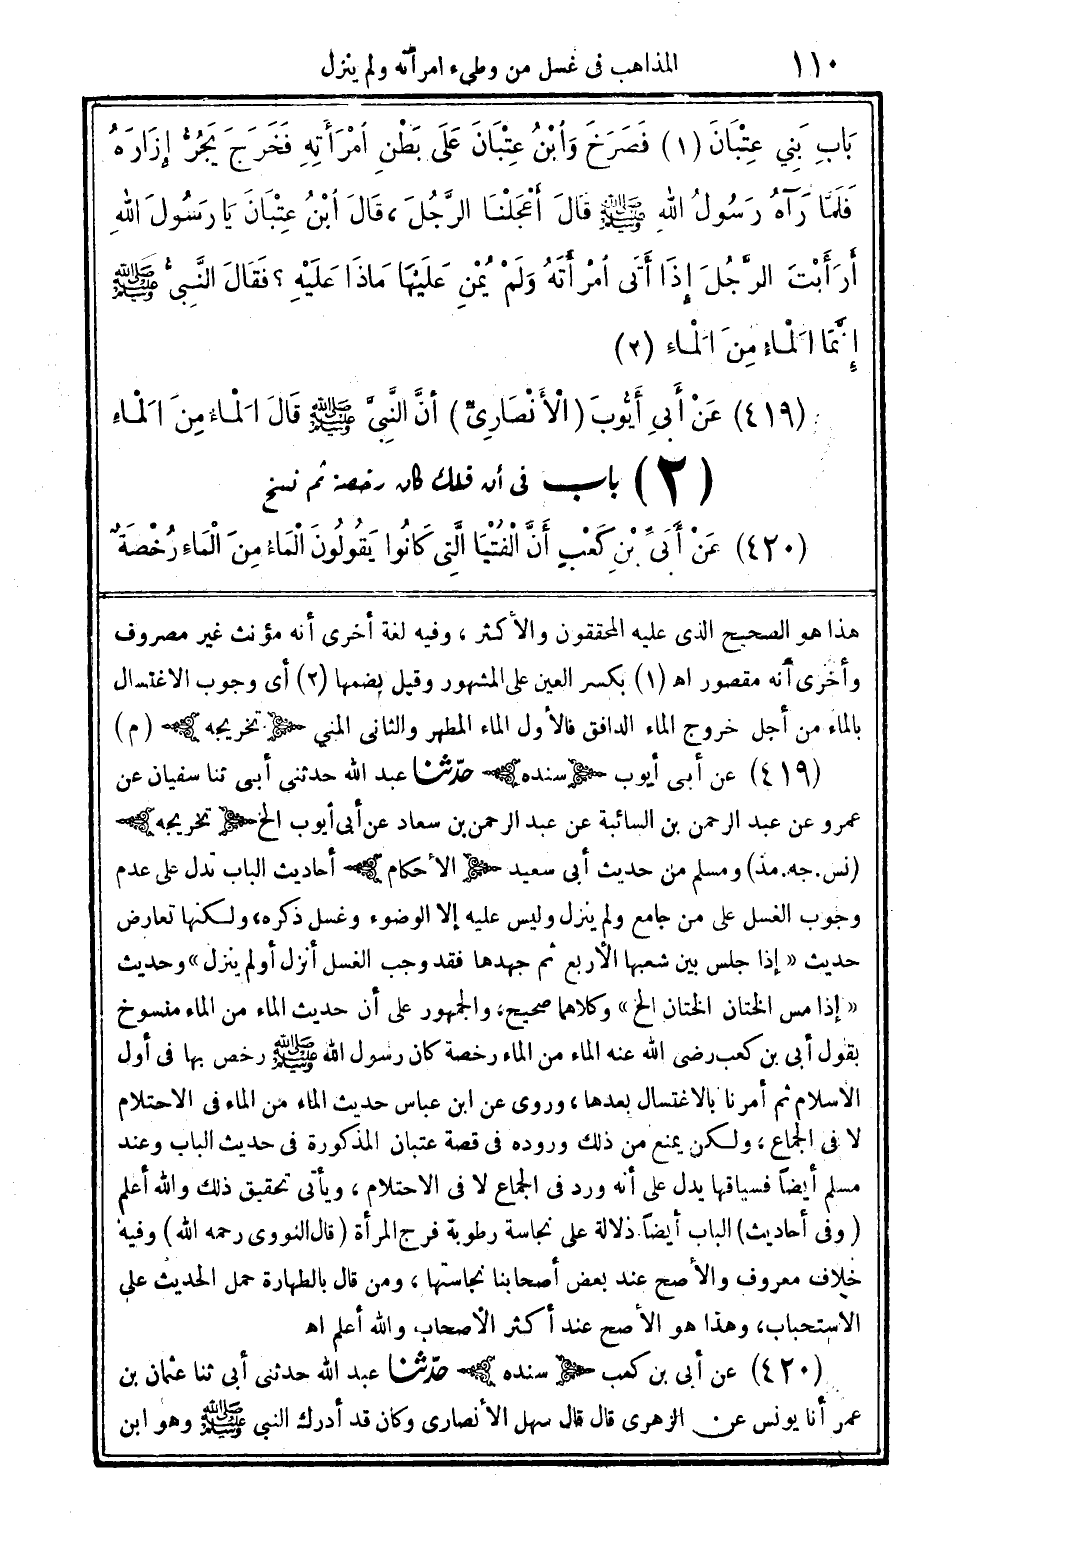 ١١٠ المذاهب فى غسل من وطىء امرأته ولم ينزل
بَابِ بَنِي عِتْبَانَ (١) فَصَرَخَ وَٱبْنُ عِتْبَانَ عَلَى بَطْنِ ٱمْرَأَتِهِ فَخَرَجَ يَجُرُّ إِزَارَهُ
فَلَمَّا رَآهُ رَسُولُ اللهِ ﷺ قَالَ أَعْجَلْنَا الرَّجُلَ ، قَالَ ٱبْنُ عِتْبَانَ يَا رَسُولَ اللهِ
أَرَأَيْتَ الرَّجُلَ إِذَا أَتَى ٱمْرَأَتَهُ وَلَمْ يُمْنِ عَلَيْهَا مَاذَا عَلَيْهِ ؟ فَقَالَ النَّبِيُّ ﷺ
إِنَّمَا الْمَاءُ مِنَ الْمَاءِ (٢)
(٤١٩) عَنْ أَبِي أَيُّوبَ (الْأَنْصَارِيِّ) أَنَّ النَّبِيَّ ﷺ قَالَ الْمَاءُ مِنَ الْمَاءِ
(٢) باب فى أن ذلك كان رخصة ثم نسخ
(٤٢٠) عَنْ أُبَىِّ بْنِ كَعْبٍ أَنَّ الْفُتْيَا الَّتِى كَانُوا يَقُولُونَ الْمَاءُ مِنَ الْمَاءِ رُخْصَةٌ
هذا هو الصحيح الذى عليه المحققون والأكثر ، وفيه لغة أخرى أنه مؤنث غير مصروف
وأخرى أنه مقصور اه (١) بكسر العين على المشهور وقيل بضمها (٢) أى وجوب الاغتسال
بالماء من أجل خروج الماء الدافق فالأول الماء المطهر والثانى المنى ﴿ تخريجه ﴾ (م)
(٤١٩) عن أبى أيوب ﴿ سنده ﴾ حدّثنا عبد الله حدثنى أبى ثنا سفيان عن
عمرو عن عبد الرحمن بن السائبة عن عبد الرحمن بن سعاد عن أبى أيوب الخ ﴿ تخريجه ﴾
(نس.جه.مذ) ومسلم من حديث أبى سعيد ﴿ الأحكام ﴾ أحاديث الباب تدل على عدم
وجوب الغسل على من جامع ولم ينزل وليس عليه إلا الوضوء وغسل ذكره، ولكنها تعارض
حديث « إذا جلس بين شعبها الأربع ثم جهدها فقد وجب الغسل أنزل أولم ينزل » وحديث
« إذا مس الختان الختان الخ » وكلاهما صحيح، والجمهور على أن حديث الماء من الماء منسوخ
بقول أبى بن كعب رضى الله عنه الماء من الماء رخصة كان رسول الله ﷺ رخص بها فى أول
الاسلام ثم أمرنا بالاغتسال بعدها ، وروى عن ابن عباس حديث الماء من الماء فى الاحتلام
لا فى الجماع ، ولكن يمنع من ذلك وروده فى قصة عتبان المذكورة فى حديث الباب وعند
مسلم أيضاً فسياقها يدل على أنه ورد فى الجماع لا فى الاحتلام ، ويأتى تحقيق ذلك والله أعلم
(وفى أحاديث) الباب أيضاً دلالة على نجاسة رطوبة فرج المرأة (قال النووى رحمه الله) وفيه
خلاف معروف والأصح عند بعض أصحابنا نجاستها ، ومن قال بالطهارة حمل الحديث على
الاستحباب، وهذا هو الأصح عند أكثر الأصحاب والله أعلم اه
(٤٢٠) عن أبى بن كعب ﴿ سنده ﴾ حدّثنا عبد الله حدثنى أبى ثنا عثمان بن
عمر أنا يونس عن الزهرى قال قال سهل الأنصارى وكان قد أدرك النبى ﷺ وهو ابن